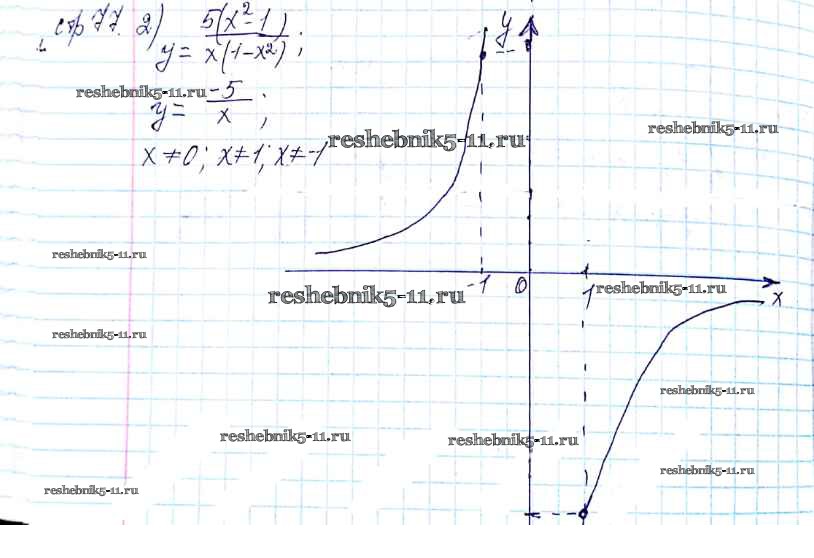 стр 77. 2) y = 5(x²-1) / x(1-x²);
reshebnik5-11.ru
y = -5 / x;
reshebnik5-11.ru
reshebnik5-11.ru
x ≠ 0; x ≠ 1; x ≠ -1
y
reshebnik5-11.ru
-1 0 1 x
reshebnik5-11.ru
reshebnik5-11.ru
reshebnik5-11.ru
reshebnik5-11.ru
reshebnik5-11.ru
reshebnik5-11.ru
reshebnik5-11.ru
reshebnik5-11.ru